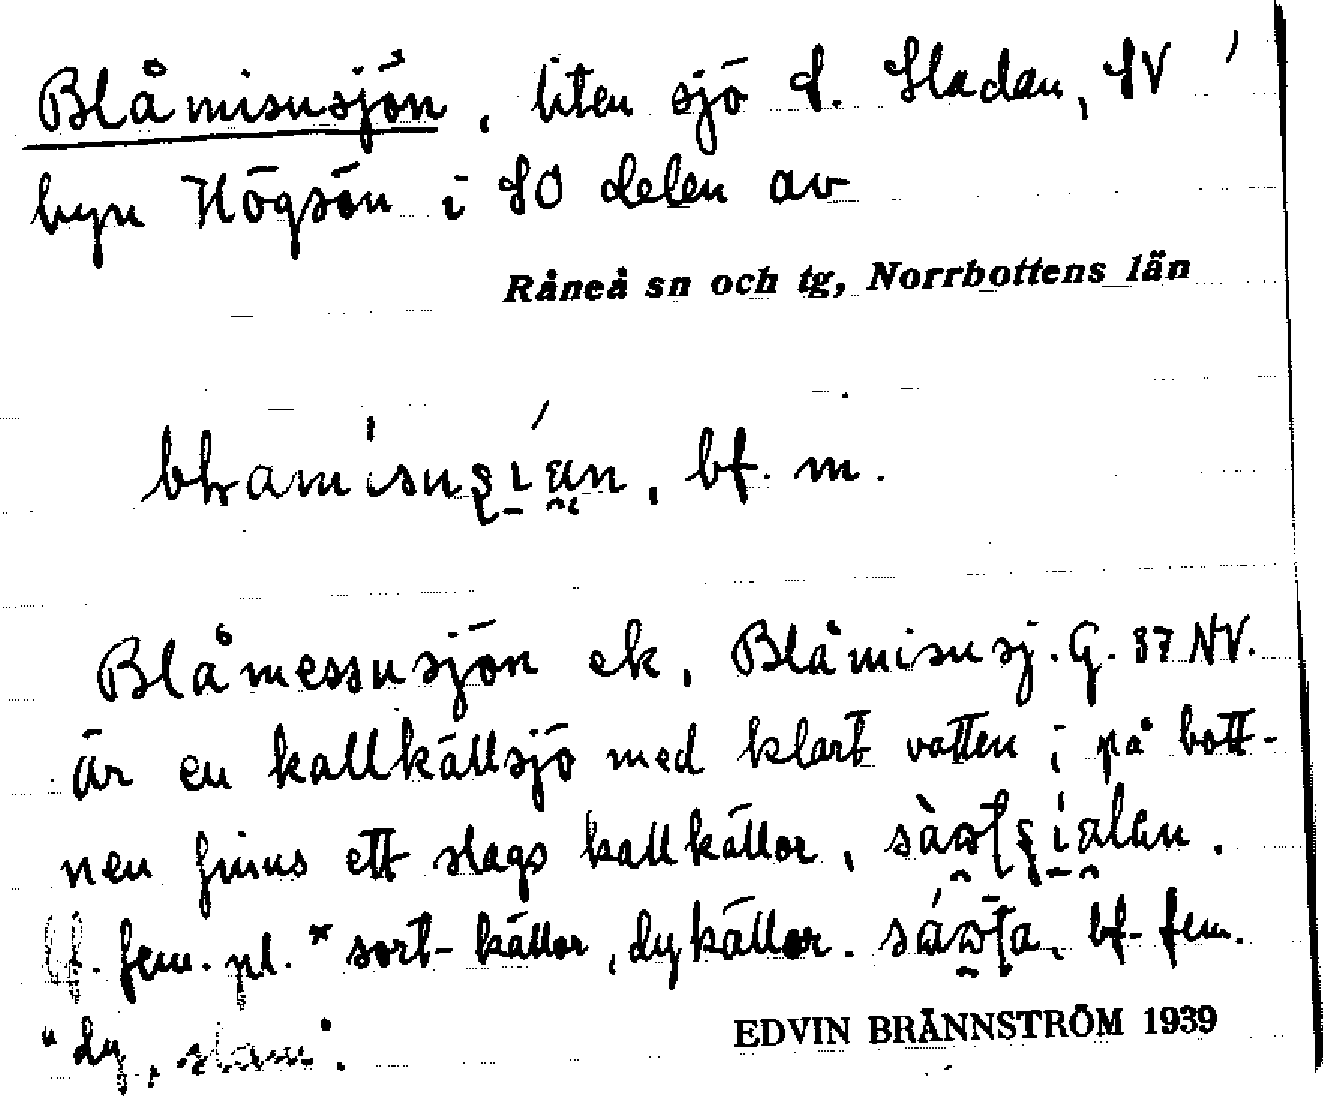 Blåmisusjön, liten sjö S. Sladan, SV
byn Högsön i SO delen av
Råneå sn och tg, Norrbottens län
bf. m.
Blåmessusjön ek, Blåmisusj. G. 87 NV.
är en kallkällsjö med klart vatten; på bott-
nen finns ett slags kallkällor,
bf. fem. pl. *sort-källor, dykällor. bf. fem.
"dy, slam".
EDVIN BRÄNNSTRÖM 1939